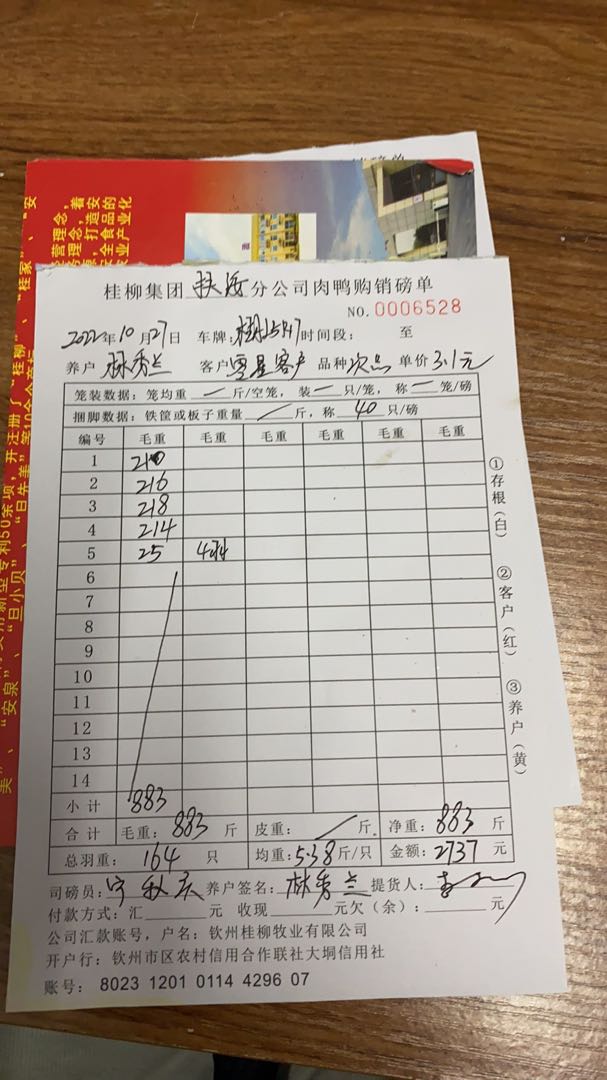 桂柳集团 分公司肉鸭购销磅单
NO. 0006528
2022年10月27日 车牌: 时间段: 至
养户 林秀兰 客户 零星客户 品种 次品 单价 3.1元
笼装数据: 笼均重 一 斤/空笼, 装 一 只/笼, 称 一 笼/磅
捆脚数据: 铁筐或板子重量 斤, 称 40 只/磅
编号 毛重 毛重 毛重 毛重 毛重 毛重
1 210
2 216
3 218
4 214
5 25 4只
6
7
8
9
10
11
12
13
14
小计 883
合计 毛重: 883 斤 皮重: 斤. 净重: 883 斤
总羽重: 164 只 均重: 5.38 斤/只 金额: 2737 元
司磅员: 养户签名: 林秀兰 提货人:
付款方式: 汇 元 收现 元欠(余): 元
公司汇款账号, 户名: 钦州桂柳牧业有限公司
开户行: 钦州市区农村信用合作联社大垌信用社
账号: 8023 1201 0114 4296 07
①存根(白)
②客户(红)
③养户(黄)